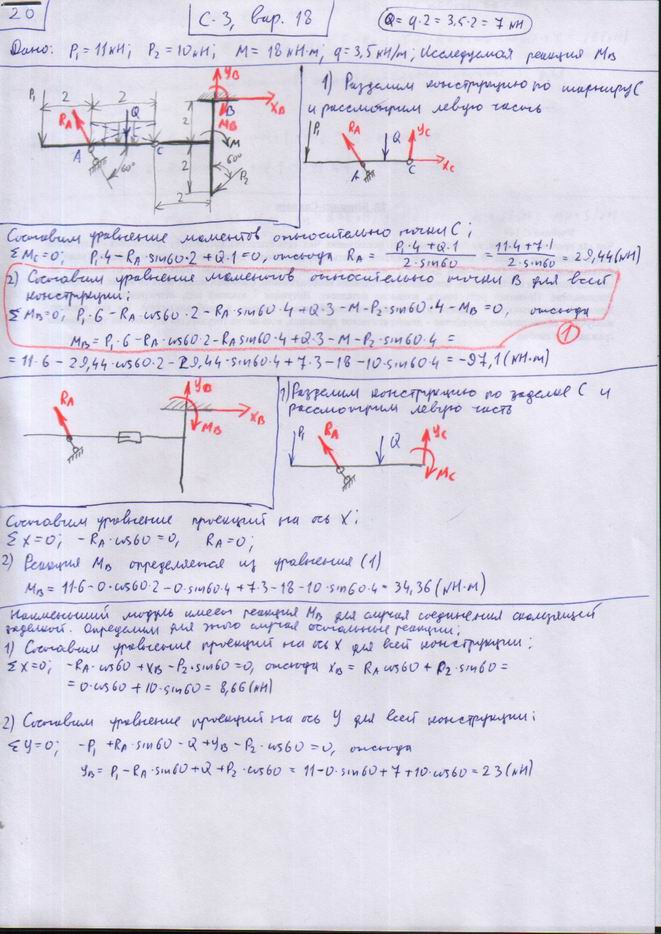 20
С-3, вар. 18
Q = q·2 = 3,5·2 = 7 кН
Дано: P₁ = 11кН; P₂ = 10кН; M = 18 кН·м; q = 3,5 кН/м; Исследуемая реакция M_B
P₁ 2 2 R_A Q A 60° C Y_B X_B B M_B 2 M 60° 2 P₂ 2
1) Разделим конструкцию по шарниру С
и рассмотрим левую часть
P₁ R_A Q Y_C A C X_C
Составим уравнение моментов относительно точки С;
ΣM_C=0; P₁·4 - R_A·sin60·2 + Q·1 = 0, откуда R_A = (P₁·4 + Q·1)/(2·sin60) = (11·4 + 7·1)/(2·sin60) = 29,44(кН)
2) Составим уравнение моментов относительно точки В для всей
конструкции;
ΣM_B=0; P₁·6 - R_A·cos60·2 - R_A·sin60·4 + Q·3 - M - P₂·sin60·4 - M_B = 0, откуда
M_B = P₁·6 - R_A·cos60·2 - R_A·sin60·4 + Q·3 - M - P₂·sin60·4 =
1
= 11·6 - 29,44·cos60·2 - 29,44·sin60·4 + 7·3 - 18 - 10·sin60·4 = -97,1(кН·м)
R_A Y_B X_B M_B
1) Разделим конструкцию по заделке С и
рассмотрим левую часть
P₁ R_A Q Y_C M_C
Составим уравнение проекций на ось X;
ΣX=0; -R_A·cos60 = 0, R_A = 0;
2) Реакция M_B определяется из уравнения (1)
M_B = 11·6 - 0·cos60·2 - 0·sin60·4 + 7·3 - 18 - 10·sin60·4 = 34,36(кН·м)
Наименьший модуль имеет реакция M_B для случая соединения скользящей
заделкой. Определим для этого случая остальные реакции;
1) Составим уравнение проекций на ось X для всей конструкции;
ΣX=0; -R_A·cos60 + X_B - P₂·sin60 = 0, откуда X_B = R_A cos60 + P₂·sin60 =
= 0·cos60 + 10·sin60 = 8,66(кН)
2) Составим уравнение проекций на ось Y для всей конструкции;
ΣY=0; -P₁ + R_A·sin60 - Q + Y_B - P₂·cos60 = 0, откуда
Y_B = P₁ - R_A·sin60 + Q + P₂·cos60 = 11 - 0·sin60 + 7 + 10·cos60 = 23(кН)